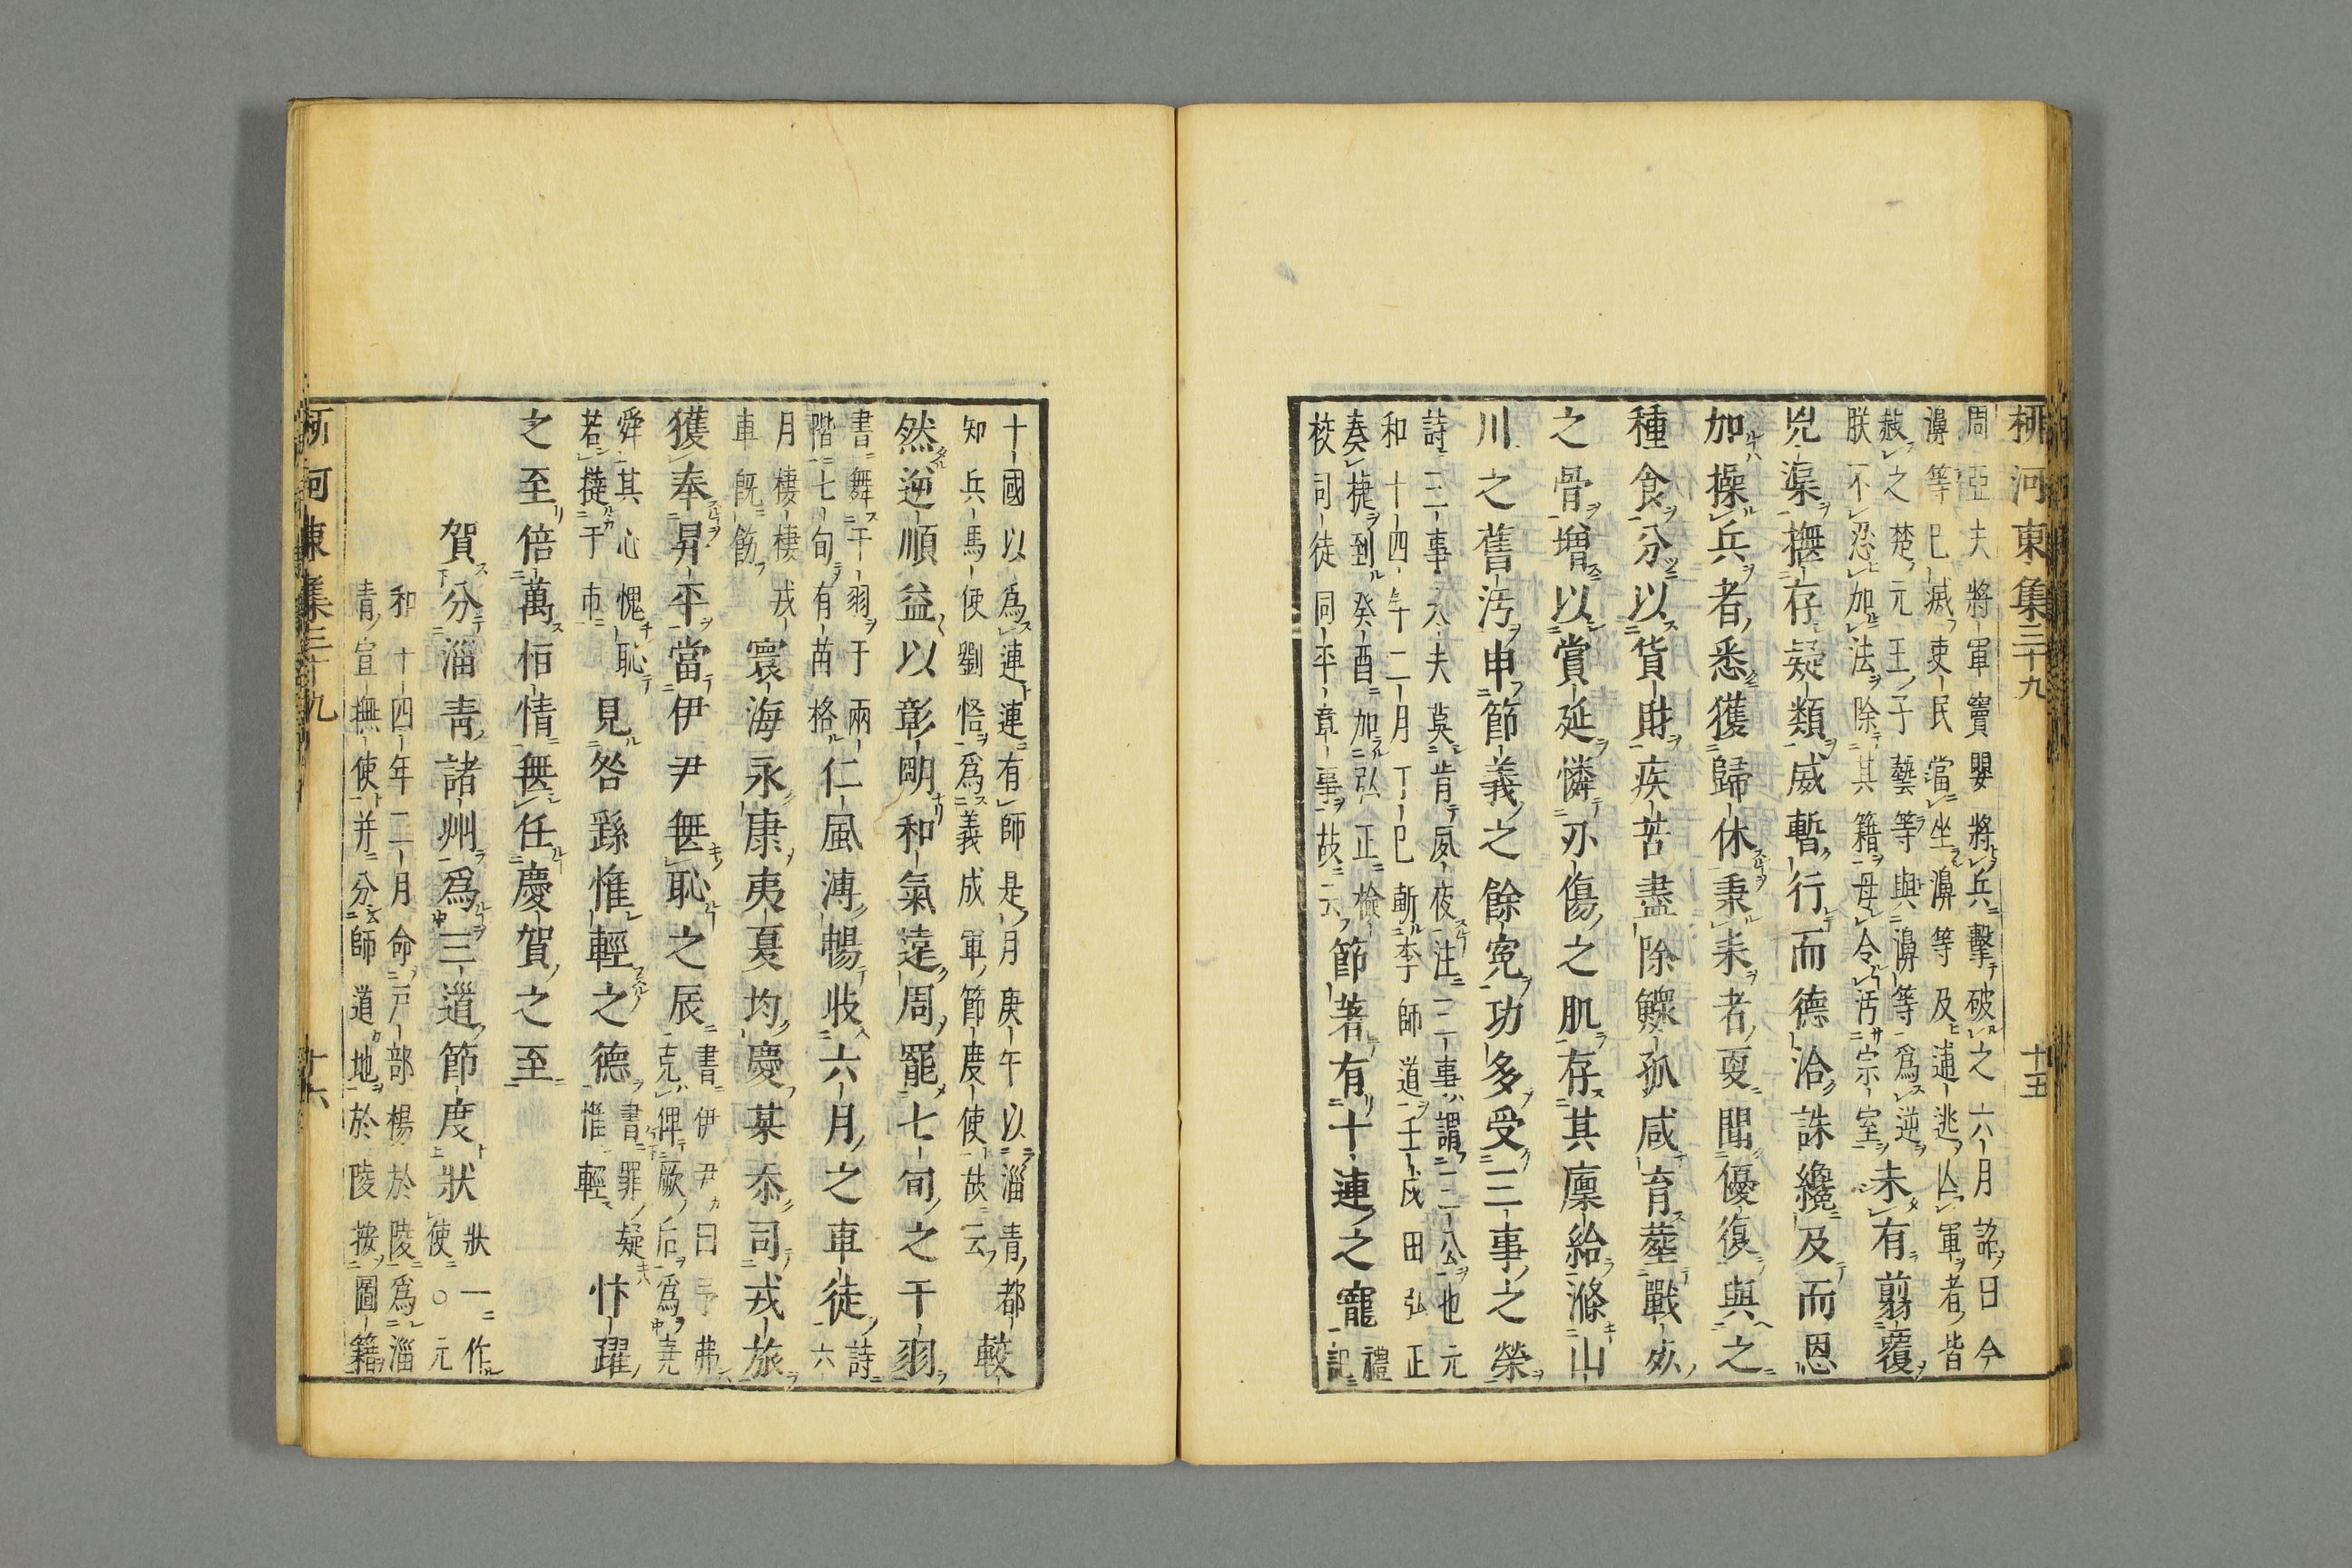 柳河東集三十九 十五
周亞夫將軍竇嬰將兵擊破之六月詔曰今
濞等已滅吏民當坐濞等及逋逃亾軍者皆
赦之楚元王子藝等與濞等爲逆
朕不忍加法除其籍毋令汚宗室
未有翦覆
兇渠撫存疑類威暫行而德洽誅纔及而恩
加操兵者悉獲歸休秉耒者更聞優復與之
種食分以貨財疾苦盡除鰥孤咸育葬戰死
之骨增以賞延憐刃傷之肌存其廩給滌山
川之舊汚申節義之餘寃功多受三事之榮
詩三事大夫莫肯夙夜注三事謂三公也元
和十四年二月丁巳斬李師道壬戌田弘正
奏捷到癸酉加弘正檢
校司徒同平章事故云
節著有十連之寵
禮
記
十國以爲連連有師是月庚午以淄青都
知兵馬使劉悟爲義成軍節度使故云
較
然逆順益以彰明和氣達周罷七旬之干羽
書舞干羽于兩
階七旬有苗格
仁風溥暢歧六月之車徒
詩
六
月棲棲戎
車旣飭
寰海永康夷夏均慶某忝司戎旅
獲奉昇平當伊尹無恥之辰
書伊尹曰予弗
克俾厥后爲堯
舜其心愧恥
若撻于市
見咎繇惟輕之德
書罪疑
惟輕
忭躍
之至倍萬恒情無任慶賀之至
賀分淄靑諸州爲三道節度狀
狀一作
使○元
和十四年二月命戸部楊於陵爲淄
青宣撫使并分師道地於陵按圖籍
柳河東集三十九 十六